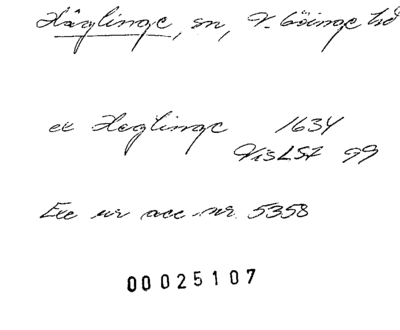 Häglinge, sn, V. Göinge hd
ex Heglinge 1634
VisLSt 99
Exc ur acc. nr. 5358
00025107